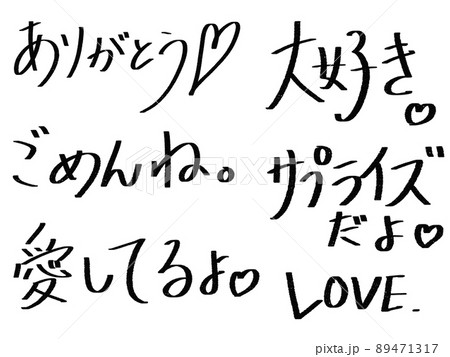 ありがとう♡
ごめんね。
愛してるよ♡
大好き♡
サプライズ
だよ♡
LOVE.
PIXTA
89471317